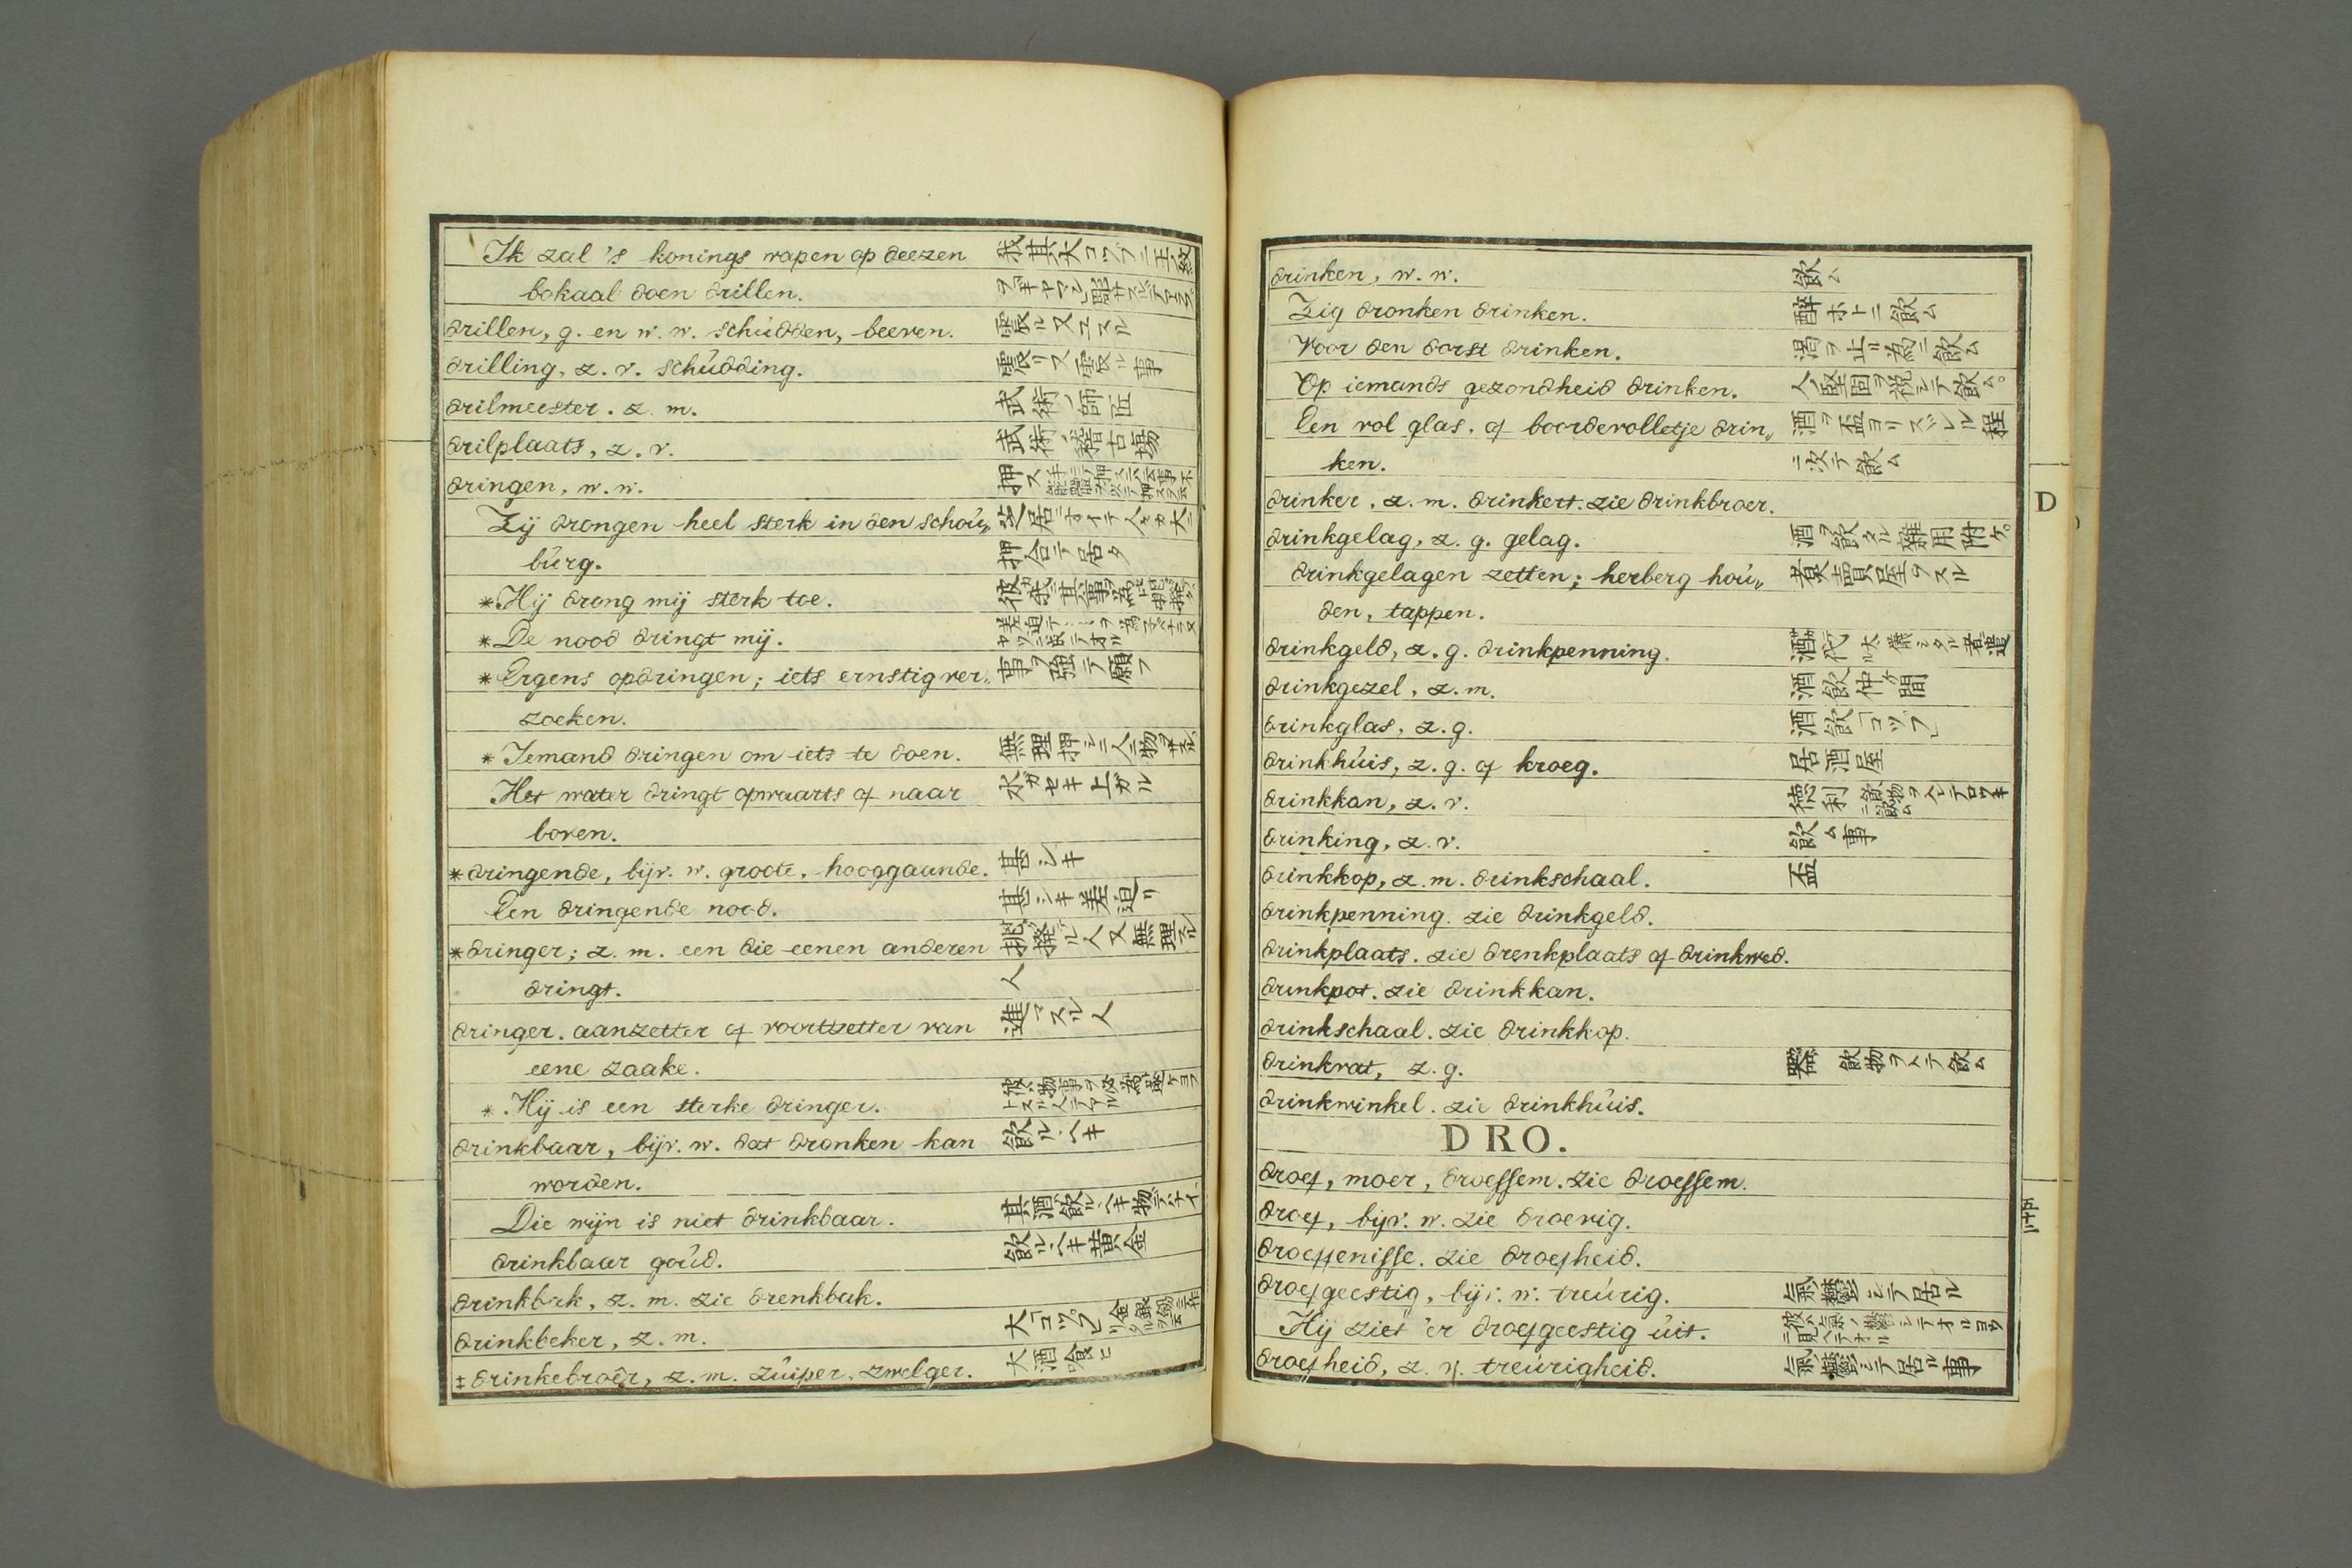 Ik zal 's konings wapen op deezen 我其大コツフニ王ノ紋
bokaal doen drillen.
drillen, g. en w. w. schúdden, beeven. 震ル又ユスル
drilling, z. v. schúdding. 震リ又震ル事
drilmeester. z. m. 武術ノ師匠
drilplaats, z. v. 武術ノ稽古場
dringen, w. w. 押ス
Zij drongen heel sterk in den schoú„ 芝居ニオイテ人々カ大ニ
búrg. 押合テ居タ
*Hij drong mij sterk toe.
*De nood dringt mij.
*Ergens opdringen; iets ernstig ver„ 事ヲ強テ願フ
zoeken.
*Iemand dringen om iets te doen. 無理押シニ人ニ物ヲサスル
Het water dringt opwaarts of naar 水ガセキ上ガル
boven.
*dringende, bijv. w. groote, hooggaande. 甚シキ
Een dringende nood. 甚シキ差迫リ
*dringer; z. m. een die eenen anderen 挑撥スル人又無理スル
dringt. 人
dringer. aanzetter of voortzetter van 進マスル人
eene zaake.
*Hij is een sterke dringer.
drinkbaar, bijv. w. dat dronken kan 飲ルヘキ
worden.
Die wijn is niet drinkbaar. 其酒ハ飲ルヘキ物デナイ
drinkbaar goúd. 飲ルヘキ黄金
drinkbak, z. m. zie drenkbak.
drinkbeker, z. m. 大コツプ
‡drinkebroêr, z. m. zúiper. zwelger. 大酒喰ヒ
drinken, w. w. 飲ム
Zig dronken drinken. 酔ホトニ飲ム
Voor den dorst drinken. 渇ヲ止ル為ニ飲ム
Op iemands gezondheid drinken. 人ノ堅固ヲ祝シテ飲ム。
Een vol glas. of boordevolletje drin„ 酒ヲ盃ヨリコズレル程
ken. ニ次テ飲ム
drinker, z. m. drinkert. zie drinkbroer.
drinkgelag, z. g. gelag. 酒ヲ飲タル雜用附ケ。
drinkgelagen zetten; herberg hoú„ 煮賣屋ヲスル
den, tappen.
drinkgeld, z. g. drinkpenning. 酒代
drinkgezel, z. m. 酒飲仲ケ間
drinkglas, z. g. 酒飲「コツプ」
drinkhúis, z. g. of kroeg. 居酒屋
drinkkan, z. v. 德利
drinking, z. v. 飲ム事
drinkkop, z. m. drinkschaal. 盃
drinkpenning. zie drinkgeld.
drinkplaats. zie drenkplaats of drinkwed.
drinkpot. zie drinkkan.
drinkschaal. zie drinkkop.
drinkvat, z. g. 飲物ヲ入テ飲ム器
drinkwinkel. zie drinkhúis.
DRO.
droef, moer, droeffem. zie droeffem.
droef, bijv. w. zie droevig.
droeffenisse. zie droefheid.
droefgeestig, bijv. w. treúrig. 氣鬱シテ居ル
Hij ziet 'er droefgeestig úit.
droefheid, z. v. treúrigheid. 氣鬱シテ居ル事
D